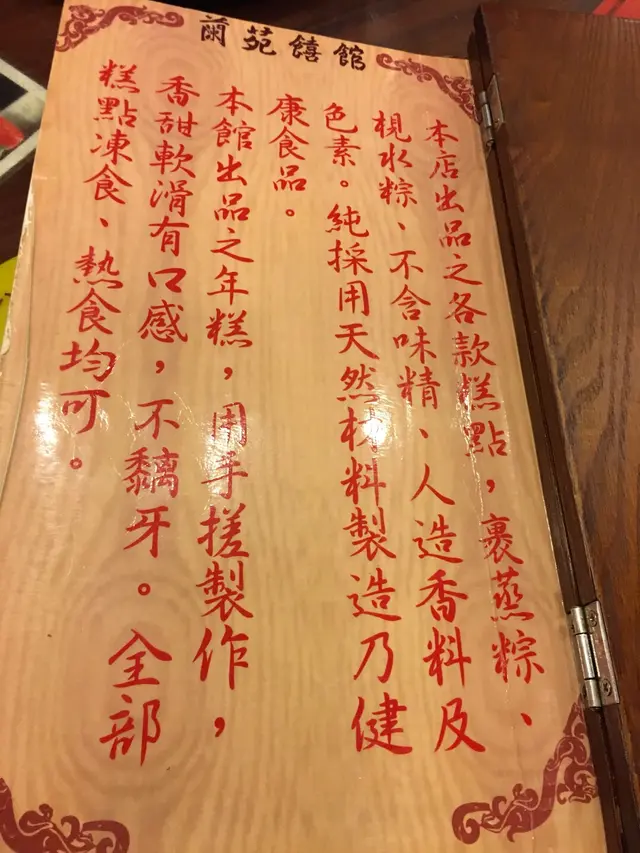 蘭苑饎館
本店出品之各款糕點，裹蒸粽、
梘水粽、不含味精、人造香料及
色素。純採用天然材料製造乃健
康食品。
本館出品之年糕，用手搓製作，
香甜軟滑有口感，不黐牙。全部
糕點凍食、熱食均可。